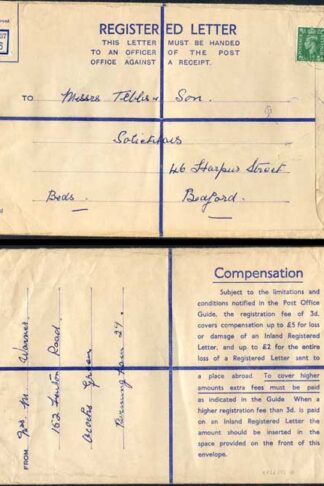 REGISTERED LETTER
THIS LETTER MUST BE HANDED
TO AN OFFICER OF THE POST
OFFICE AGAINST A RECEIPT.
TO Messrs Tebbs & Son.
Solicitors
46 Harpur Street
Beds. Bedford.
FROM Mrs. M. Warner
152 Fenton Road.
Acocks Green
Birmingham 27.
Compensation
Subject to the limitations and
conditions notified in the Post Office
Guide, the registration fee of 3d.
covers compensation up to £5 for loss
or damage of an Inland Registered
Letter, and up to £2 for the entire
loss of a Registered Letter sent to
a place abroad. To cover higher
amounts extra fees must be paid
as indicated in the Guide. When a
higher registration fee than 3d. is paid
on an Inland Registered Letter the
amount should be inserted in the
space provided on the front of this
envelope.